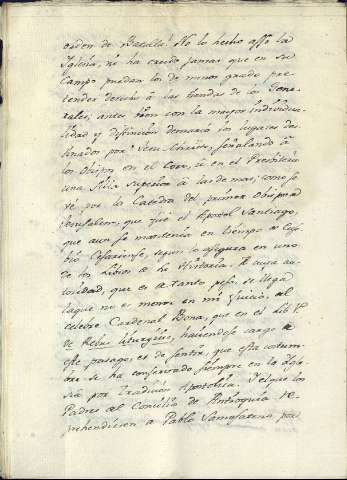 orden de Batalla! No lo hecho asso la
Iglesia, ni ha creido jamas que en su
Campo puedan los de menor grado pre-
tender derecho â las tiendas de los Gene-
rales; antes bien con la mayor individua-
lidad y distincion demarcó los lugares des-
tinados por su Uncion, señalando â
los Obispos en el Coro, û en el Presbiterio
una Silla superior â las demas; como se
vé por la Cathedra del primer Obispo de
Jerusalem, que fue el Apostol Santiago,
que aun se mantenia en tiempo de Euse-
bio Cesariense, segun lo asegura en uno
de los Libros de su Historia. A cuya au-
toridad, que es de tanto peso, se llega
la que no es menor en mi juicio, del
celebre Cardenal Bona, que en el Lib. 1º
de Rebus Liturgicis, haciendose cargo de
este pasage, es de sentir, que esta costum-
bre se ha conservado siempre en la Igle-
sia por Tradicion Apostolica. Y el que los
Padres del Concilio de Anthioquia re-
prehendiesen a Pablo Samosateno por